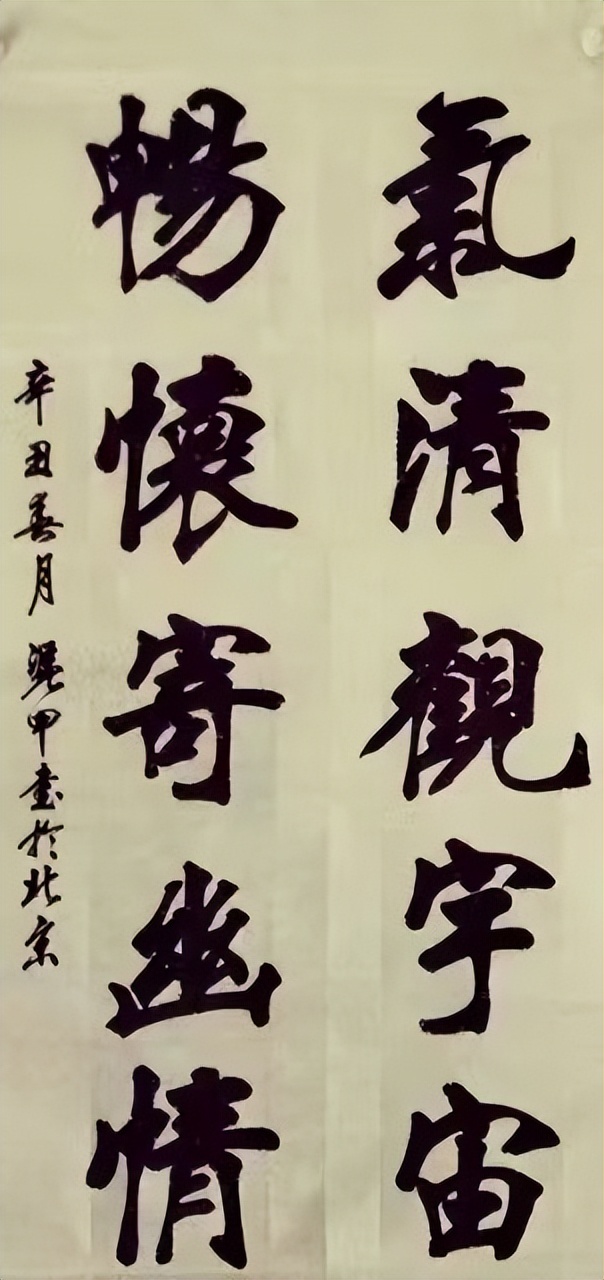 氣清觀宇宙
暢懷寄幽情
辛丑春月 溫甲書於北京